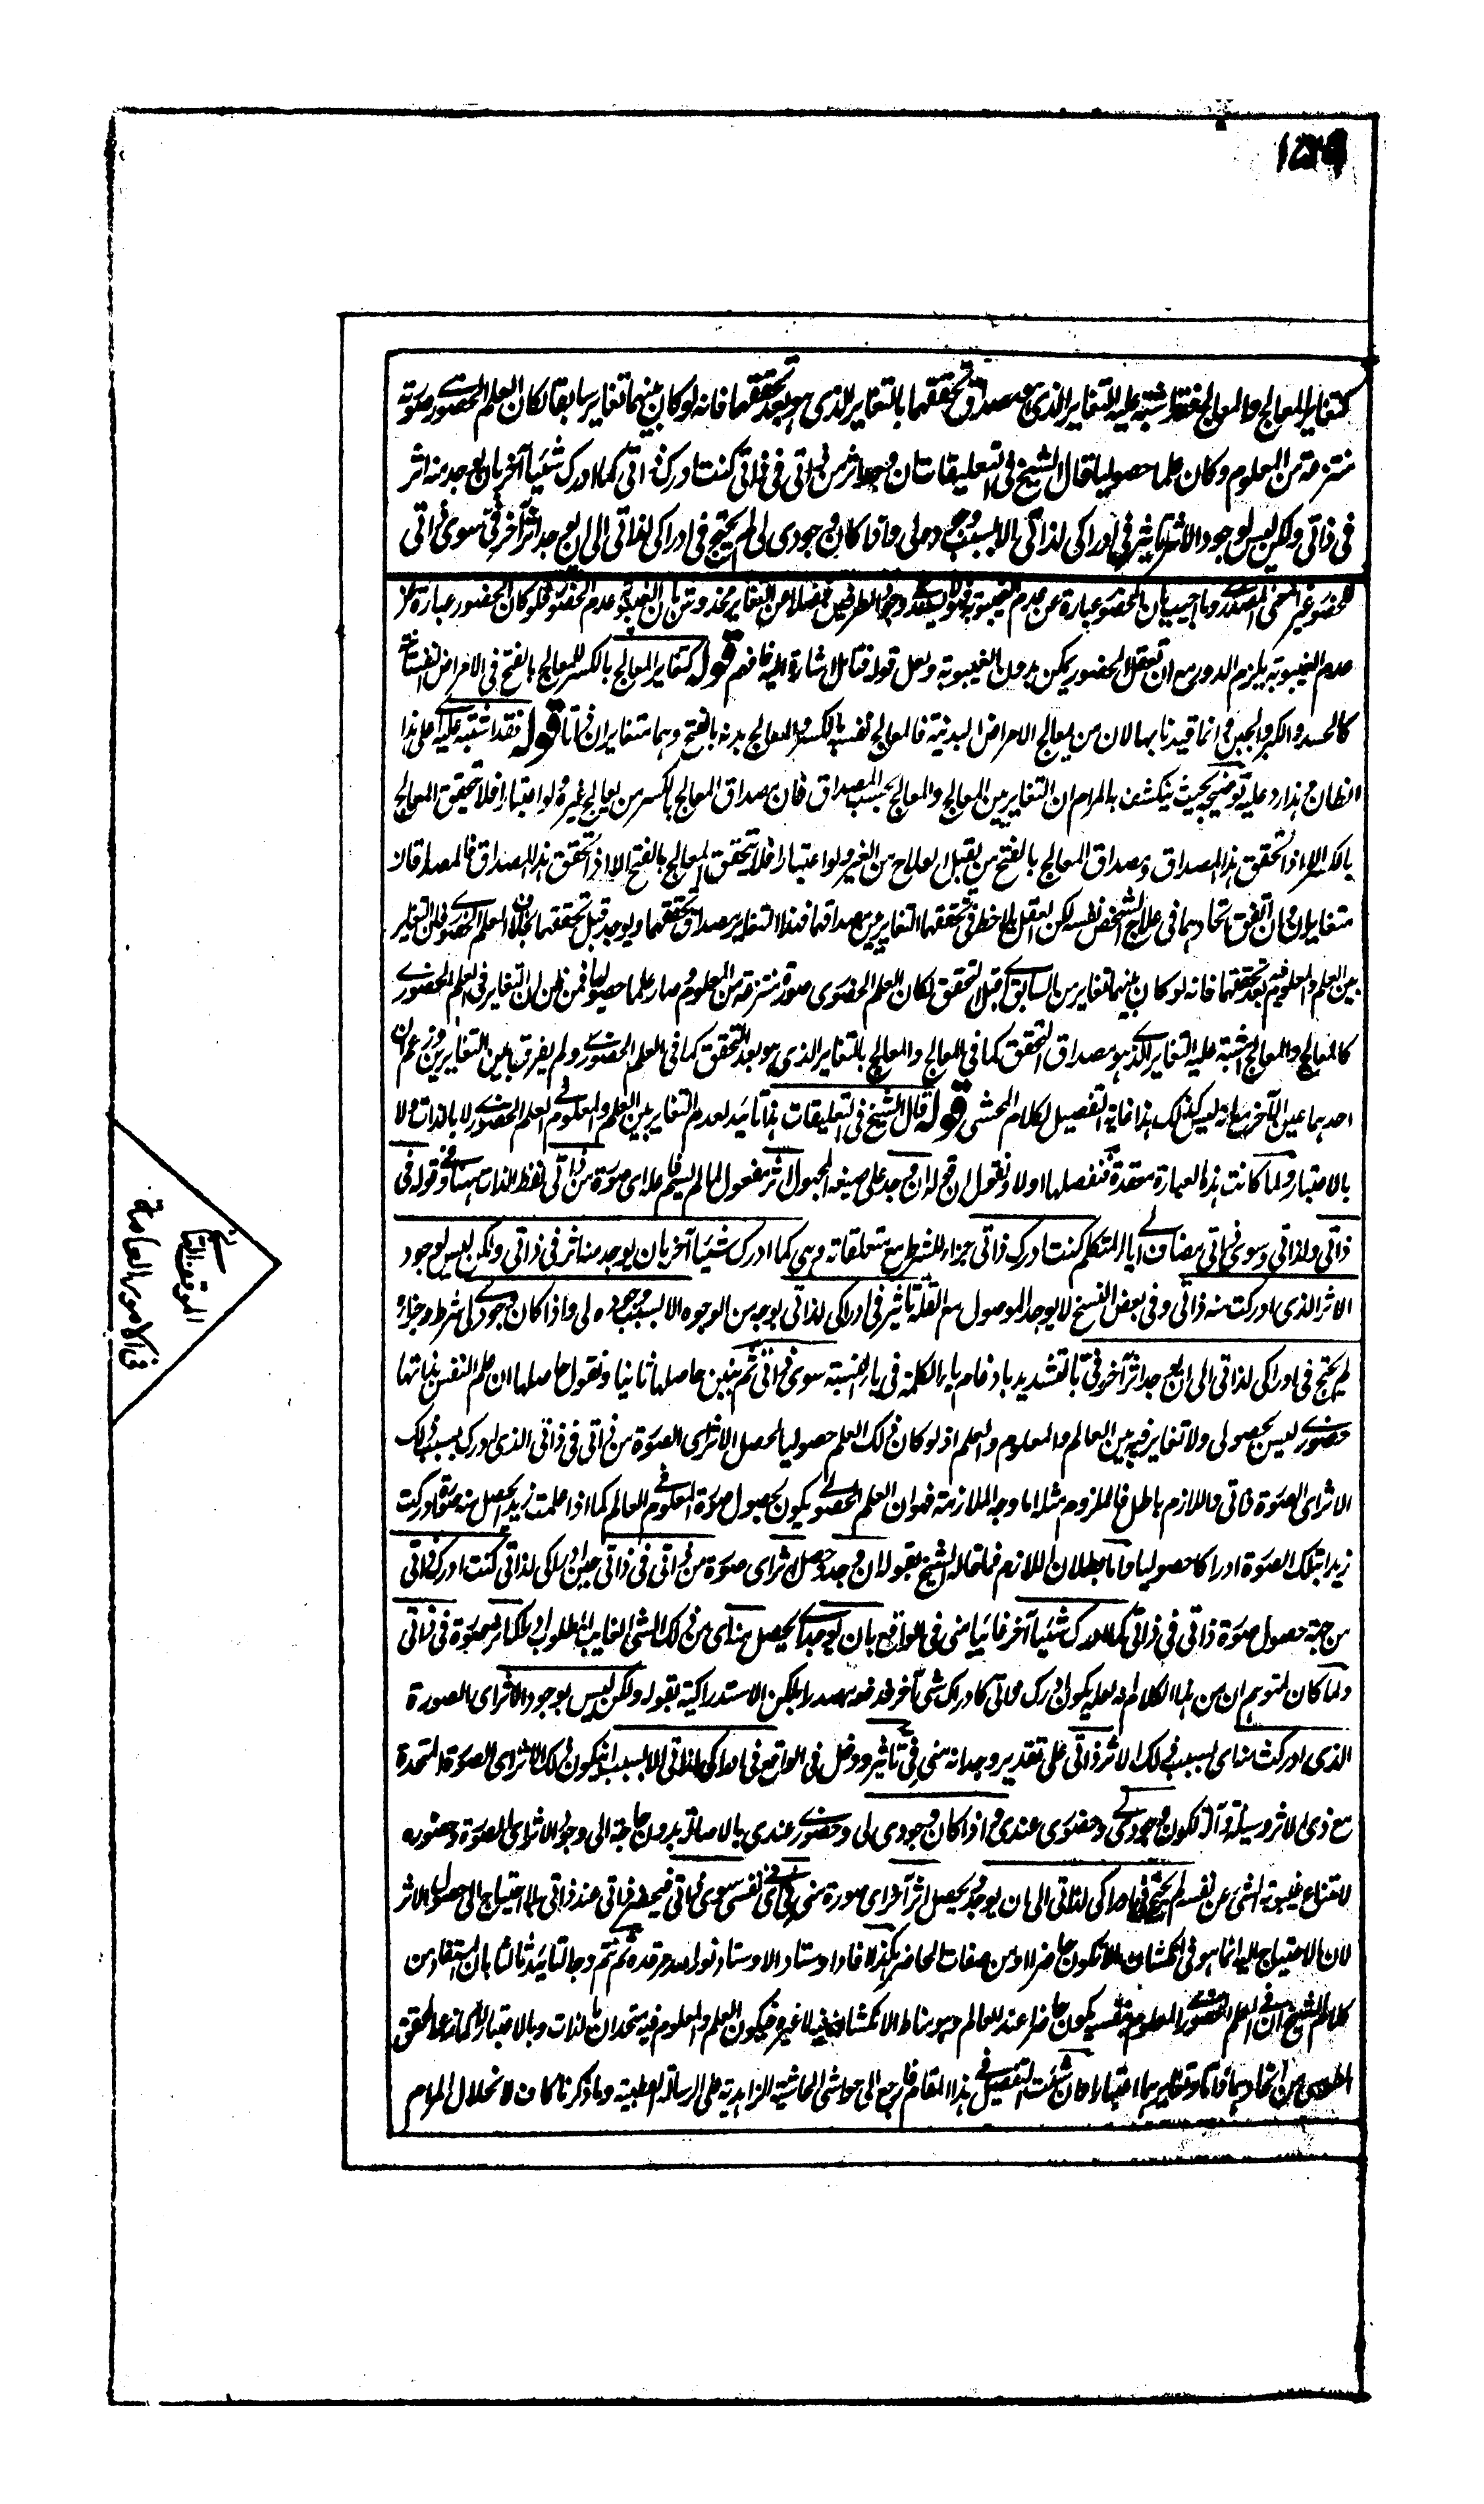 كتغاير المعالج والمعالج فقد اشتبه عليه التغاير الذي هو مصداق تحققهما بالتغاير الذي هو بعد تحققهما فانه لو كان بينهما تغاير سابقا لكان العلم الحضوري صورة
منتزعة من المعلوم وكان علما حصوليا قال الشيخ في التعليقات ان وجد اثر من ذاتي في ذاتي كنت ادرك ذاتي كما ادرك شيئا آخر بان يوجد منه اثر
في ذاتي ولكن ليس لوجود الاثر تاثير في ادراكي لذاتي الا بسبب وجوده لي واذا كان وجودي لي لم يحتج في ادراكي لذاتي الى ان يوجد اثر آخر في سوى ذاتي
عدم الغيبوبة يلزم الدور مع ان تعقل الحضور يمكن بدون الغيبوبة ولعل قوله فتامل اشارة اليه فافهم قوله كتغاير المعالج بالكسر للمعالج بالفتح في الامراض النفسانية
كالحسد والكبر والجبن وانما قيدنا بها لان من يعالج الامراض البدنية فالمعالج نفسه بالكسر والمعالج بدنه بالفتح وهما متغايران ذاتا قوله فقد اشتبه عليه على هذا
الظان هذا رد عليه توضيحه بحيث ينكشف به المرام ان التغاير بين المعالج والمعالج بحسب المصداق فان مصداق المعالج بالكسر من يعالج غيره ولو اعتبارا فلا تحقق المعالج
بالكسر الا اذا تحقق هذا المصداق ومصداق المعالج بالفتح من يقبل العلاج من الغير ولو اعتبارا فلا تحقق المعالج بالفتح الا اذا تحقق هذا المصداق فالمصداقان
متغايران وان اتفق اتحادهما في علاج الشخص نفسه لكن العقل يلاحظ في تحققهما التغاير بين مصداقهما فهذا التغاير مصداق تحققهما ويوجد قبل تحققهما بخلاف العلم الحضوري فان التغاير
بين العلم والمعلوم فيه بعد تحققهما فانه لو كان بينهما تغاير من السابق اي قبل التحقق لكان العلم الحضوري صورة منتزعة من المعلوم وصار علما حصوليا فمن ظن ان التغاير في العلم الحضوري
كالمعالج والمعالج اشتبه عليه التغاير الذي هو مصداق التحقق كما في المعالج والمعالج بالتغاير الذي هو بعد التحقق كما في العلم الحضوري ولم يفرق بين التغايرين وزعم ان
احدهما عين الآخر مع انه ليس كذلك هذا غاية التفصيل لكلام المحشي قوله قال الشيخ في التعليقات هذا تائيد لعدم التغاير بين العلم والمعلوم في العلم الحضوري لا بالذات ولا
بالاعتبار ولما كانت هذه العبارة منعقدة فنفصلها اولا ونقول ان قوله ان وجد على صيغة المجهول اثر مفعول ما لم يسم فاعله اي صورة من ذاتي لفظ الذات ههنا وفي قوله في
ذاتي ولذاتي وسوى ذاتي مضاف الى ياء المتكلم كنت ادرك ذاتي جزاء للشرط مع متعلقاته وهي كما ادرك شيئا آخر بان يوجد منه اثر في ذاتي ولكن ليس لوجود
الاثر الذي ادركت منه ذاتي وفي بعض النسخ لا يوجد الموصول مع الصلة تاثير في ادراكي لذاتي بوجه من الوجوه الا بسبب وجوده لي واذا كان وجودي لي شرط وجزاؤه
لم يحتج في ادراكي لذاتي الى ان يوجد اثر آخر في بالتشديد بادغام ياء الكلمة في ياء النسبة سوى ذاتي ثم نبين حاصلها ثانيا ونقول حاصلها ان علم النفس بذاتها
حضوري ليس بحصولي ولا تغاير فيه بين العالم والمعلوم والعلم اذ لو كان ذلك العلم حصوليا لحصل الاثر اي الصورة من ذاتي في ذاتي الذي ادرك بسبب ذلك
الاثر اي الصورة ذاتي واللازم باطل فالملزوم مثله اما وجه الملازمة فهو ان العلم الحصولي يكون بحصول صورة المعلوم في العالم كما اذا علمت زيدا يحصل منه صورة وادركت
زيدا بتلك الصورة ادراكا حصوليا واما بطلان اللازم فلما قال الشيخ بقوله ان وجد وحصل اثر اي صورة من ذاتي في ذاتي حين ادراكي لذاتي كنت ادرك ذاتي
من جهة حصول صورة ذاتي في ذاتي كما ادرك شيئا آخر غائبا مني في الواقع بان يوجد اي يحصل منه اي من ذلك الشيء الغائب المطلوب ادراكه اثر وصورة في ذاتي
ولما كان لمتوهم ان يتوهم من هذا الكلام انه لعله يكون ادراك ذاتي كادراك شيء آخر فدفعه مصدرا بلكن الاستدراكية بقوله ولكن ليس لوجود الاثر اي الصورة
الذي ادركت منه اي بسبب ذلك الاثر ذاتي على تقدير وجدانه مني في تاثير ودخل في الواقع في ادراكي لذاتي الا بسبب ان يكون ذلك الاثر اي الصورة المتحدة
مع ذي الاثر وسيلة وآلة لكون وجودي لي وحضوري عندي واذا كان وجودي لي وحضوري عندي بالاصالة بدون حاجة الى وجود الاثر اي الصورة وحضوره
لامتناع غيبوبة الشيء عن نفسه لم يحتج في ادراكي لذاتي الى ان يوجد ويحصل اثر آخر اي صورة مني في اي في نفسي سوى ذاتي فيحضر ذاتي عند ذاتي بلا احتياج الى حصول الاثر
لان الاحتياج اليه انما هو في انكشاف ما لا يكون حاضرا ولا من صفات الحاضر هكذا افاد استاذ الاستاذ نور الله مرقده ثم وجه التائيد ثالثا بان المستفاد من
كلام الشيخ ان في العلم الحضوري المعلوم بنفسه يكون حاضرا عند العالم وهو مناط الانكشاف فيه لا غيره فيكون العلم والمعلوم فيه متحدان بالذات وبالاعتبار لا كما زعم المحقق
الطوسي من اتحادهما ذاتا وتغايرهما اعتبارا وان شئت التفصيل في هذا المقام فارجع الى حواشي الحاشية الزاهدية على الرسالة القطبية وما ذكرنا كاف لانحلال المرام
الموقف الثاني
في الامور العامة